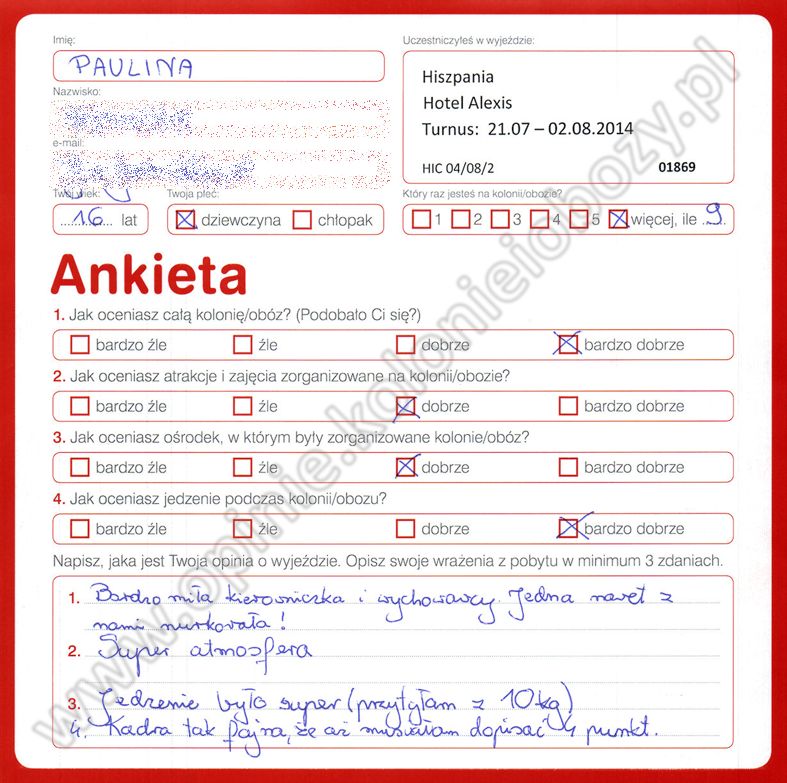 Imię:
PAULINA
Nazwisko:
e-mail:
Twój wiek:
16 lat
Twoja płeć:
dziewczyna chłopak
Uczestniczyłeś w wyjeździe:
Hiszpania
Hotel Alexis
Turnus: 21.07 – 02.08.2014
HIC 04/08/2 01869
Który raz jesteś na kolonii/obozie?
1 2 3 4 5 więcej, ile 9
Ankieta
1. Jak oceniasz całą kolonię/obóz? (Podobało Ci się?)
bardzo źle źle dobrze bardzo dobrze
2. Jak oceniasz atrakcje i zajęcia zorganizowane na kolonii/obozie?
bardzo źle źle dobrze bardzo dobrze
3. Jak oceniasz ośrodek, w którym były zorganizowane kolonie/obóz?
bardzo źle źle dobrze bardzo dobrze
4. Jak oceniasz jedzenie podczas kolonii/obozu?
bardzo źle źle dobrze bardzo dobrze
Napisz, jaka jest Twoja opinia o wyjeździe. Opisz swoje wrażenia z pobytu w minimum 3 zdaniach.
1. Bardzo miła kierowniczka i wychowawcy. Jedna nawet z
nami nurkowała!
2. Super atmosfera
3. Jedzenie było super (przytyłam z 10 kg)
4. Kadra tak fajna, że aż musiałam dopisać 4 punkt.
www.opinie.kolonieiobozy.pl